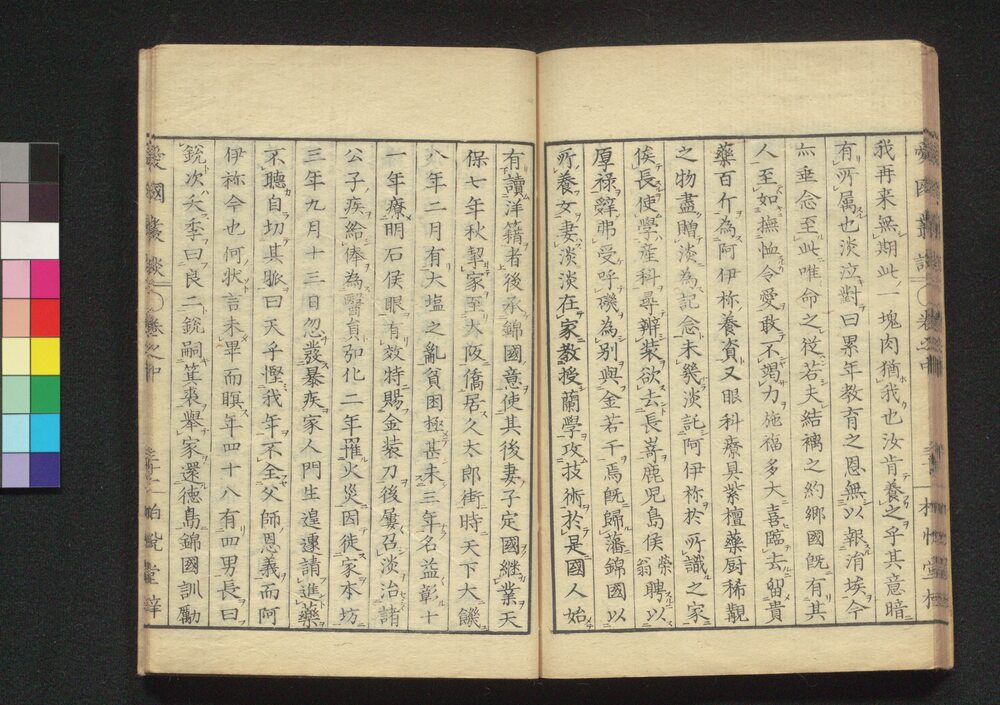 我再来無期此一塊肉猶我也汝肯養之乎其意暗
有所属也淡泣對曰累年教育之恩無以報涓埃今
亦垂念至此唯命之從若夫結褵之約郷國既有其
人至如撫恤令愛敢不竭力施福多大喜臨去留貴
藥百斤為阿伊祢養資又眼科療具紫檀藥厨稀覯
之物盡贈淡為記念未幾淡託阿伊祢於所識之家
俟長使學産科尋辦装欲去長崎鹿児島侯榮翁聘以
厚禄辭弗受呼磯為別與金若干焉既歸藩錦國以
所養女妻淡淡在家教授蘭學攻技術於是國人始
有讀洋籍者後承錦國意使其後妻子定國継業天
保七年秋挈家至大阪僑居久太郎街時天下大饑
八年二月有大塩之亂貧困極甚未三年名益彰十
一年療明石侯眼有效特賜金装刀後屢召淡治諸
公子疾給俸為醫員弘化二年罹火災因徒家本坊
三年九月十三日忽發暴疾家人門生遑遽請進藥
不聽自切其脈曰天乎慳我年不全父師恩義而阿
伊祢今也何状言未畢而瞑年四十八有四男長曰
鋭次大季曰良二鋭嗣箕裘舉家還徳島錦國訓勵